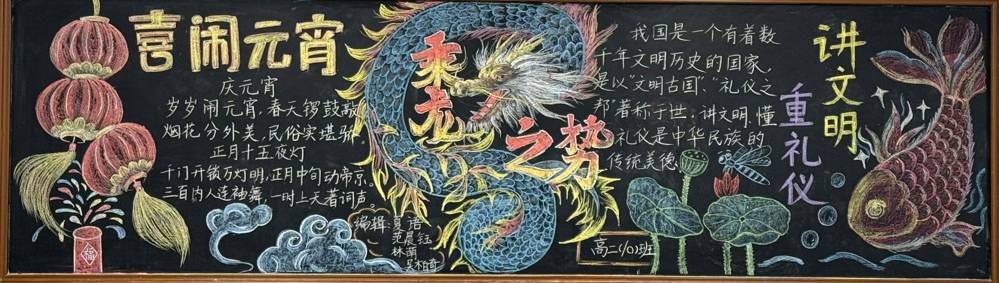 喜闹元宵
庆元宵
岁岁闹元宵，春天锣鼓敲。
烟花分外美，民俗实堪骄。
正月十五夜灯
千门开锁万灯明，正月中旬动帝京。
三百内人连袖舞，一时上天著词声。
编辑：夏语
范晨钰
林萌
吴柏萱
福
乘龙
之势
我国是一个有着数
千年文明历史的国家，
是以“文明古国”、“礼仪之
邦”著称于世。讲文明、懂
礼仪是中华民族的
传统美德。
高二(10)班
讲文明
重礼仪